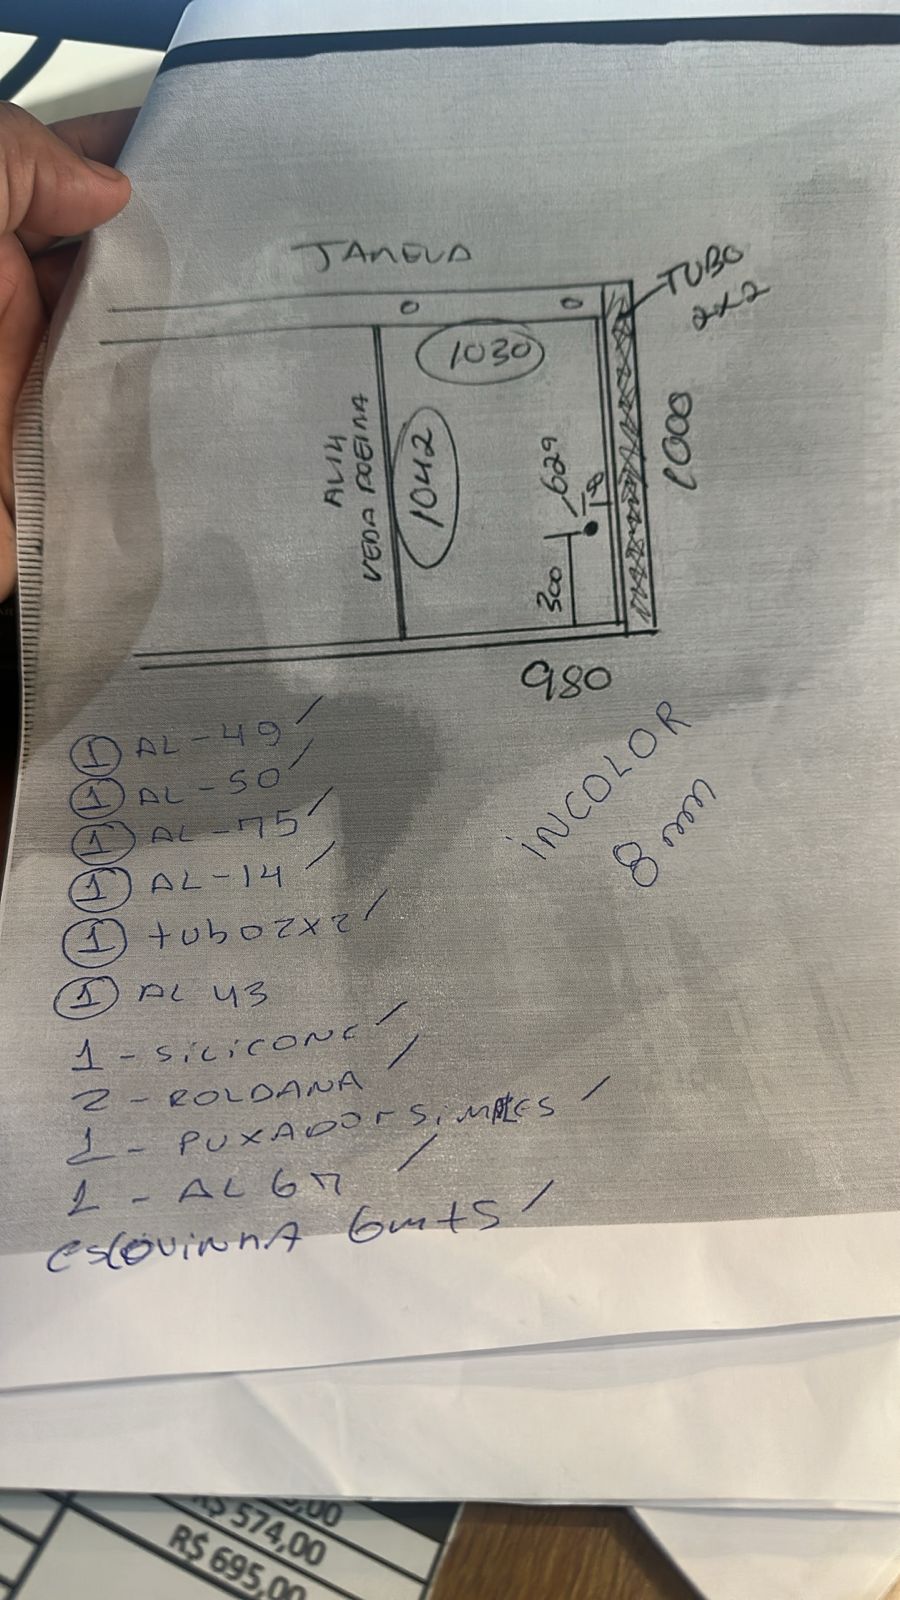 JANELA
TUBO
2x2
1030
AL14
VEDA POEIRA
1042
629
50
300
1000
980
INCOLOR
8mm
1 AL-49
1 AL-50
1 AL-75
1 AL-14
1 tubo 2x2
1 AL 43
1 - SiLiCONE
2 - ROLDANA
1 - PUXADOr SiMPLES
1 - AL 67
escovinhA 6mts
R$ 574,00
R$ 695,00